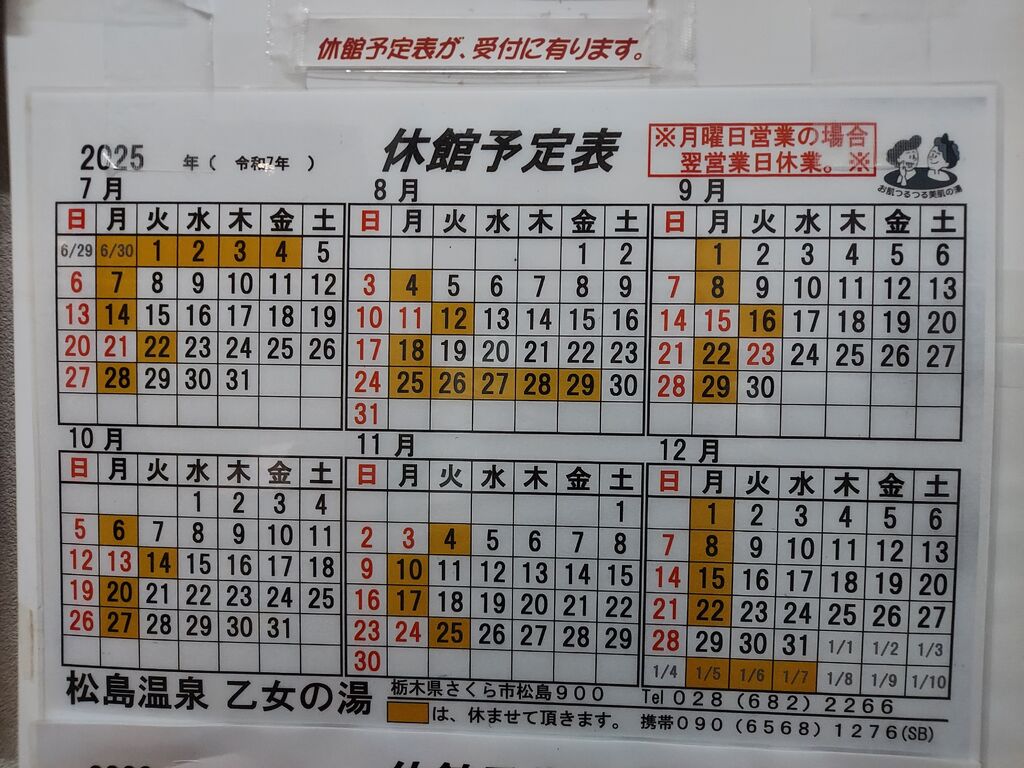 休館予定表が、受付に有ります。
2025 年( 令和7年 )
休館予定表
※月曜日営業の場合
翌営業日休業。※
お肌つるつる美肌の湯
7 月
日 月 火 水 木 金 土
6/29 6/30 1 2 3 4 5
6 7 8 9 10 11 12
13 14 15 16 17 18 19
20 21 22 23 24 25 26
27 28 29 30 31
8 月
日 月 火 水 木 金 土
1 2
3 4 5 6 7 8 9
10 11 12 13 14 15 16
17 18 19 20 21 22 23
24 25 26 27 28 29 30
31
9 月
日 月 火 水 木 金 土
1 2 3 4 5 6
7 8 9 10 11 12 13
14 15 16 17 18 19 20
21 22 23 24 25 26 27
28 29 30
10 月
日 月 火 水 木 金 土
1 2 3 4
5 6 7 8 9 10 11
12 13 14 15 16 17 18
19 20 21 22 23 24 25
26 27 28 29 30 31
11 月
日 月 火 水 木 金 土
1
2 3 4 5 6 7 8
9 10 11 12 13 14 15
16 17 18 19 20 21 22
23 24 25 26 27 28 29
30
12 月
日 月 火 水 木 金 土
1 2 3 4 5 6
7 8 9 10 11 12 13
14 15 16 17 18 19 20
21 22 23 24 25 26 27
28 29 30 31 1/1 1/2 1/3
1/4 1/5 1/6 1/7 1/8 1/9 1/10
松島温泉 乙女の湯
栃木県さくら市松島900
Tel 028 (682) 2266
は、休ませて頂きます。 携帯090 (6568) 1276(SB)